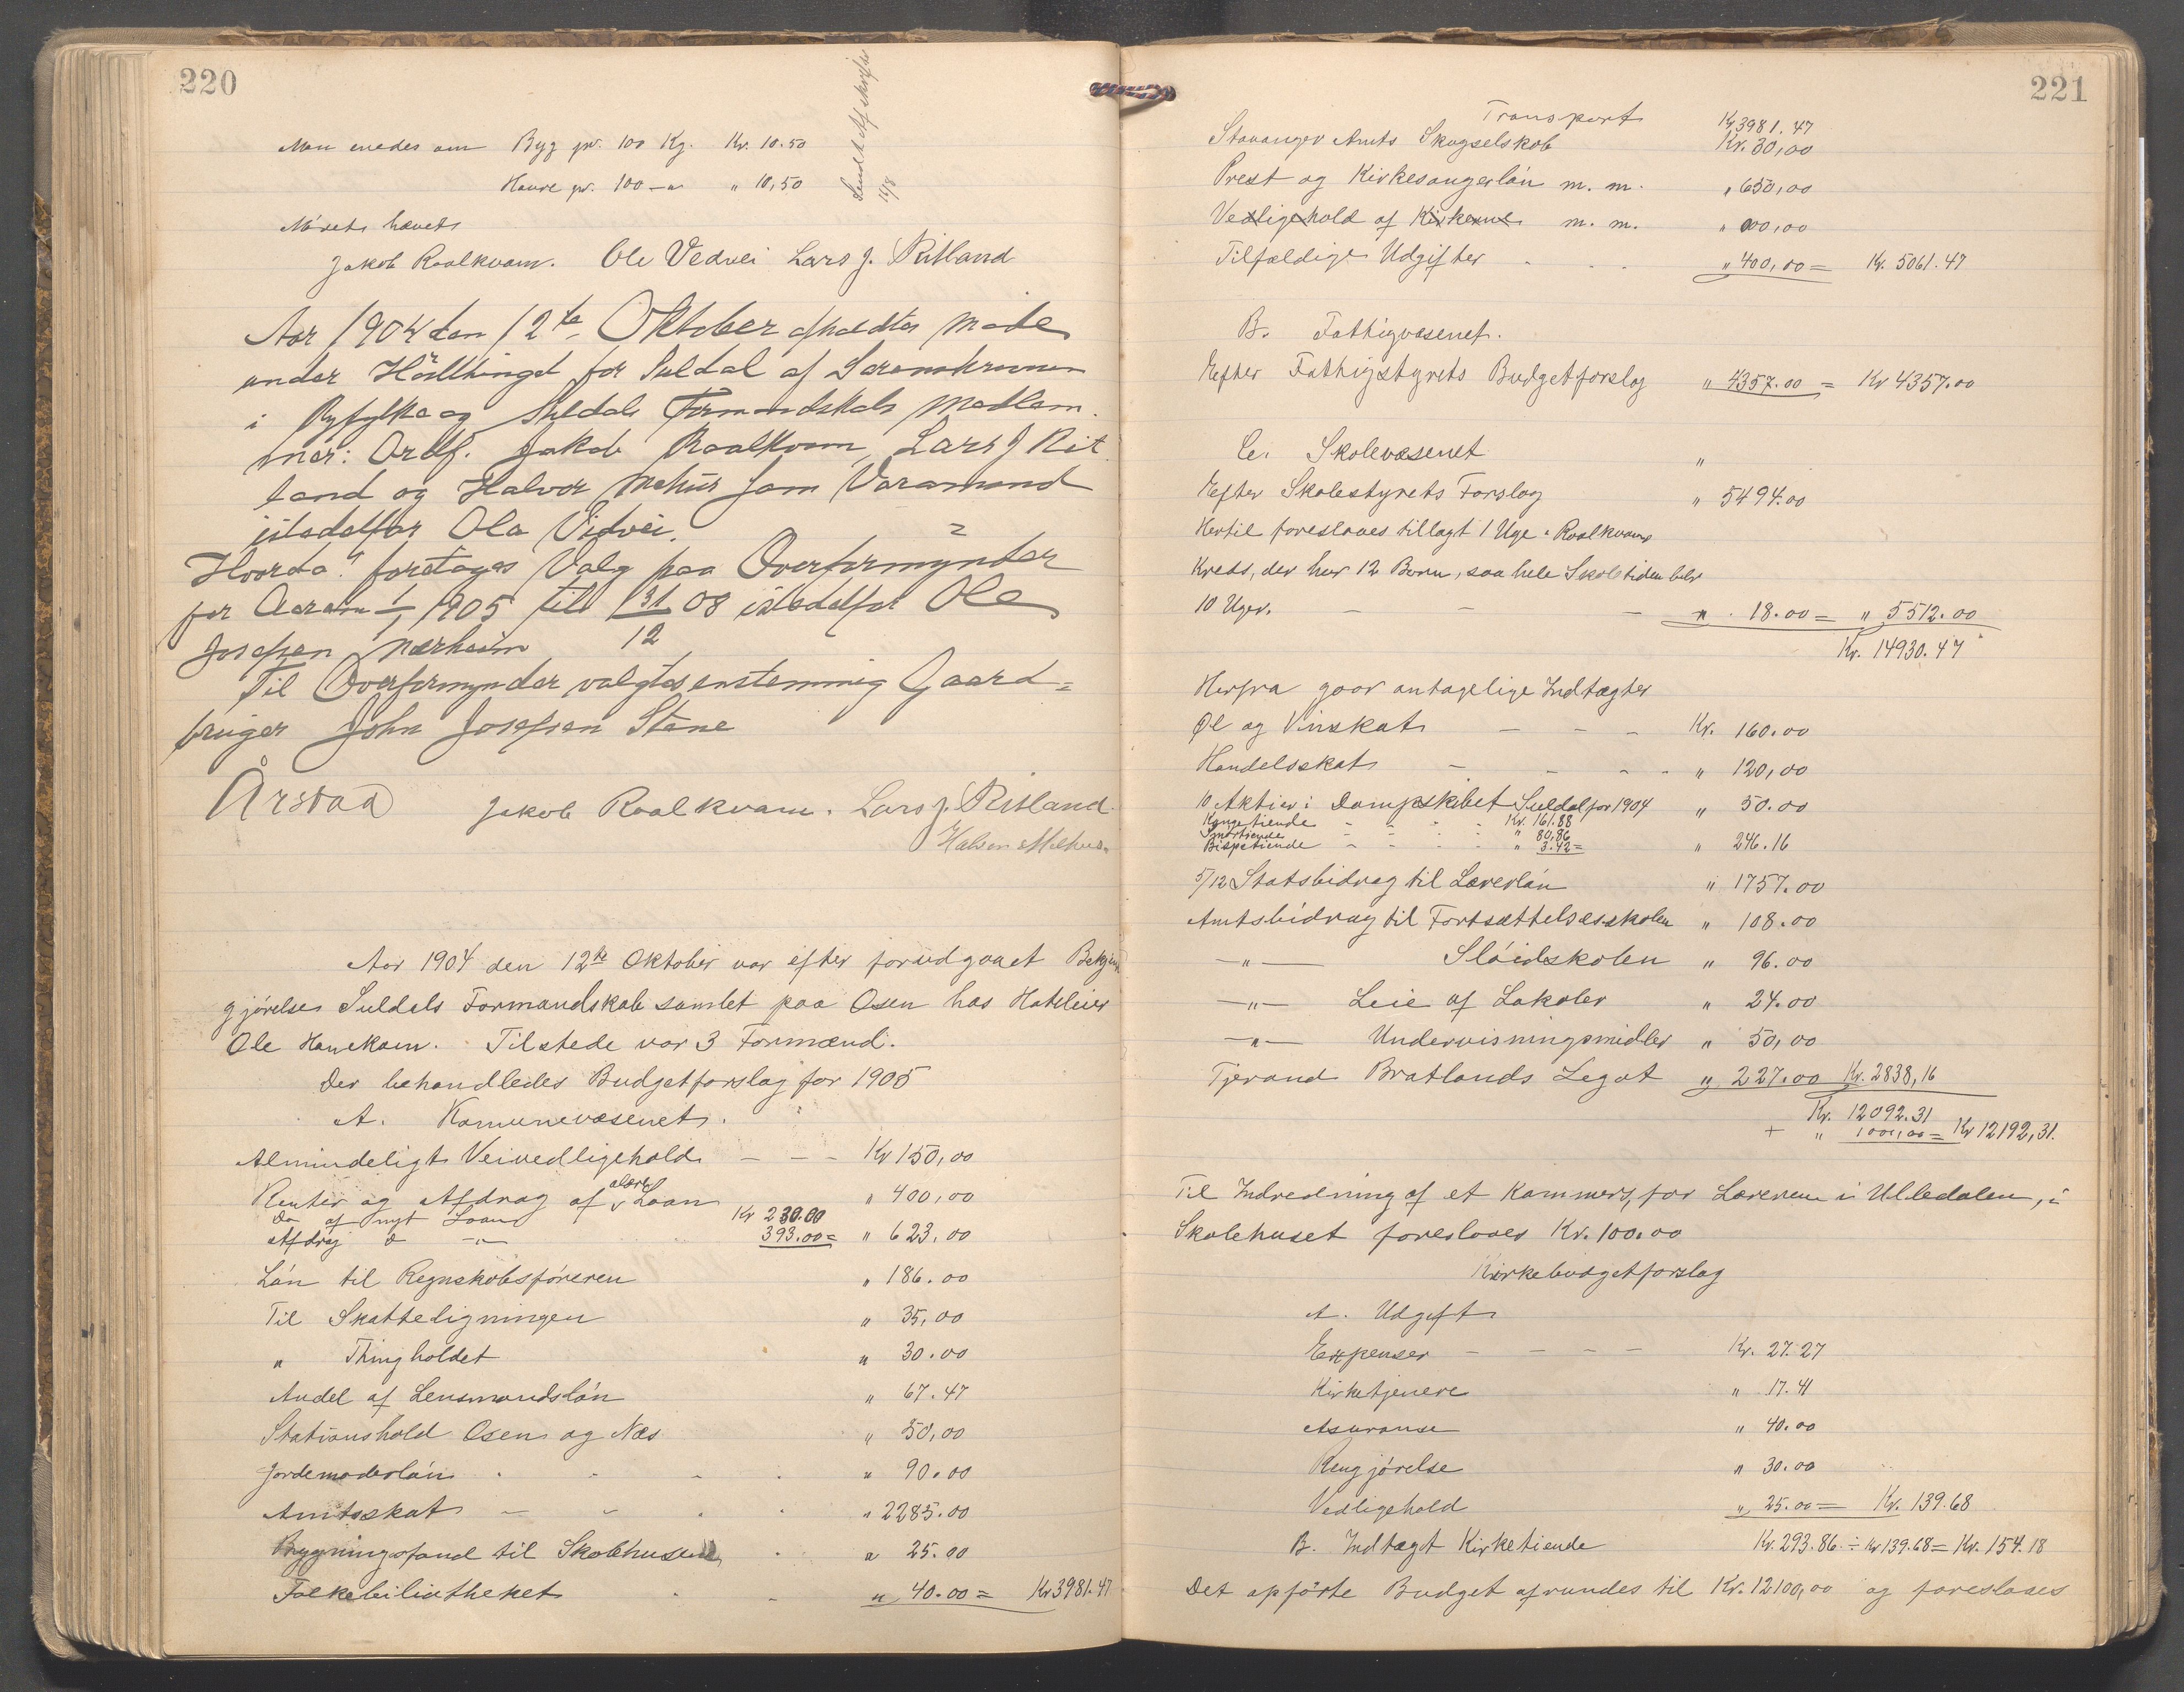 220
Man enedes om Byg pr. 100 Kg. Kr. 10.50
Havre pr. 100 -"- " 10,50
Sendt Afskrift
14/8
Mødet hævet
Jakob Roalkvam. Ole Vedvei Lars J. Ritland
Aar 1904 den 12te Oktober afholdtes Møde
under Hösttinget for Suldal af Sorenskriveren
i Ryfylke og Suldals Formandskabs Medlem-
mer: Ordf. Jakob Roalkvam, Lars J Rit-
land og Halvor Mehus som Varamand
istedetfor Ola Vedvei.
Hvorda: foretages Valg paa Overformynder
for Aarene 1/1 1905 til 31/12 08 istedetfor Ole
Josefsen Nærheim
Til Overformynder valgtes enstemmig Gaard-
bruger John Josefsen Stene
Årstad Jakob Roalkvam. Lars J. Ritland.
Halvor Mehus.
Aar 1904 den 12te Oktober var efter forudgaaet Bekjendt
gjørelse Suldals Formandskab samlet paa Osen hos Hoteleier
Ole Hanekam. Tilstede var 3 Formænd.
Der behandledes Budgetforslag for 1905
A. Komunevæsenet.
Almindeligt Veivedligehold - - - Kr 150,00
Renter og Afdrag af ældre Laan " 400,00
Do af nyt Laan Kr 230.00
Afdrag d -"- 393.00 = " 623,00
Løn til Regnskabsføreren " 186.00
Til Skatteligningen " 35,00
" Thingholdet " 30.00
Andel af Lensmandsløn " 67.47
Stationshold Osen og Næs " 50,00
Jordemoderløn " 90.00
Amtsskat " 2285.00
Bygningsfond til Skolehusene " 25.00
Folkebibliotheket " 40.00 = Kr 3981.47
221
Transport Kr 3981.47
Stavanger Amts Skogselskab Kr. 30,00
Prest og Kirkesangerløn m. m. " 650,00
Vedligehold af Kirkerne m. m. " 000,00
Tilfældige Udgifter . . . " 400,00 = Kr. 5061.47
B. Fattigvæsenet.
Efter Fattigstyrets Budgetforslag " 4357.00 = Kr 4357.00
C. Skolevæsenet "
Efter Skolestyrets Forslag " 5494.00
Hertil foreslaaes tillagt 1 Uge i Roalkvams
Kreds, der har 12 Børn, saa hele Skoletiden blir
10 Uger. - - - " 18.00 = " 5512.00
Kr. 14930.47
Herfra gaar antagelige Indtægter
Øl og Vinskat - - - Kr. 160.00
Handelsskat - - - - " 120,00
10 Aktier i Dampskibet Suldal for 1904 " 50.00
Kongetiende - - - Kr. 161.88
Smørtiende - - - " 80,86
Bispetiende - - - " 3.42 = " 246.16
5/12 Statsbidrag til Lærerløn " 1757.00
Amtsbidrag til Fortsættelsesskolen " 108.00
-"- Sløidskolen " 96.00
-"- Leie af Lokaler " 24.00
-"- Undervisningsmidler " 50,00
Tjerand Bratlands Legat " 227.00 Kr. 2838,16
Kr. 12092.31
+ " 100,00 = Kr 12192,31.
Til Indredning af et Kammers, for Læreren i Ulledalen, i
Skolehuset foreslaaes Kr. 100.00
Kirkebudgetforslag
A. Udgift
Expenser - - - - Kr. 27.27
Kirketjenere " 17.41
Asuranse " 40.00
Rengjørelse " 30.00
Vedligehold " 25.00 = Kr. 139.68
B. Indtægt Kirketiende Kr. 293.86 ÷ Kr 139.68 = Kr. 154.18
Det opførte Budget afrundes til Kr. 12100,00 og foreslaaes